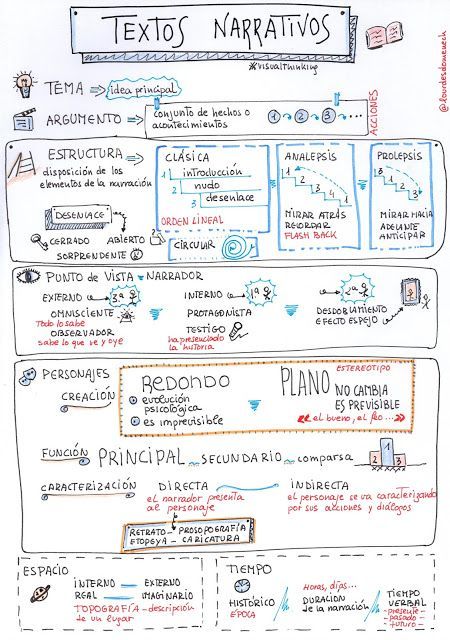 TEXTOS NARRATIVOS
#visualthinking
@lourdesdomenech
TEMA
idea principal
ARGUMENTO
conjunto de hechos o
acontecimientos
1 2 3 ...
ACCIONES
ESTRUCTURA
disposición de los
elementos de la narración
DESENLACE
CERRADO
ABIERTO
SORPRENDENTE
CLÁSICA
1 introducción
2 nudo
3 desenlace
ORDEN LINEAL
CIRCULAR
ANALEPSIS
1
2
3
4
1
MIRAR ATRÁS
RECORDAR
FLASH BACK
PROLEPSIS
3
1
2
3
MIRAR HACIA
ADELANTE
ANTICIPAR
PUNTO DE VISTA = NARRADOR
EXTERNO
3ª
OMNISCIENTE
Todo lo sabe
OBSERVADOR
Sabe lo que ve y oye
INTERNO
1ª
PROTAGONISTA
TESTIGO
ha presenciado
la historia
2ª
DESDOBLAMIENTO
EFECTO ESPEJO
PERSONAJES
CREACIÓN
REDONDO
evolución
psicológica
es imprecisible
ESTEREOTIPO
PLANO
NO CAMBIA
ES PREVISIBLE
el bueno, el feo...
FUNCIÓN
PRINCIPAL
SECUNDARIO
comparsa
2 1 3
CARACTERIZACIÓN
DIRECTA
el narrador presenta
al personaje
INDIRECTA
el personaje se va caracterizando
por sus acciones y diálogos
RETRATO - PROSOPOGRAFÍA
ETOPEYA - CARICATURA
ESPACIO
INTERNO — EXTERNO
REAL — IMAGINARIO
TOPOGRAFÍA - descripción
de un lugar
TIEMPO
HISTÓRICO
EPOCA
Horas, días...
DURACIÓN
de la narración
TIEMPO
VERBAL
presente-
pasado-
futuro-